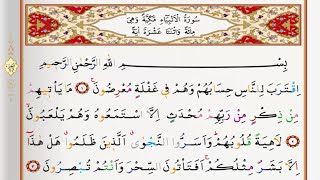 سُورَةُ الْاَنْبِيَٓاءِ مَكِّيَّةٌ وَهِيَ
مِائَةٌ وَاثْنَتَا عَشْرَةَ اٰيَةً
بِسْمِ اللّٰهِ الرَّحْمٰنِ الرَّحٖيمِ
اِقْتَرَبَ لِلنَّاسِ حِسَابُهُمْ وَهُمْ فٖي غَفْلَةٍ مُعْرِضُونَ ۝ مَا يَأْتٖيهِمْ
مِنْ ذِكْرٍ مِنْ رَبِّهِمْ مُحْدَثٍ اِلَّا اسْتَمَعُوهُ وَهُمْ يَلْعَبُونَ ۝
لَاهِيَةً قُلُوبُهُمْ وَاَسَرُّوا النَّجْوٰى اَلَّذٖينَ ظَلَمُوا هَلْ هٰذَٓا
اِلَّا بَشَرٌ مِثْلُكُمْ اَفَتَأْتُونَ السِّحْرَ وَاَنْتُمْ تُبْصِرُونَ ۝